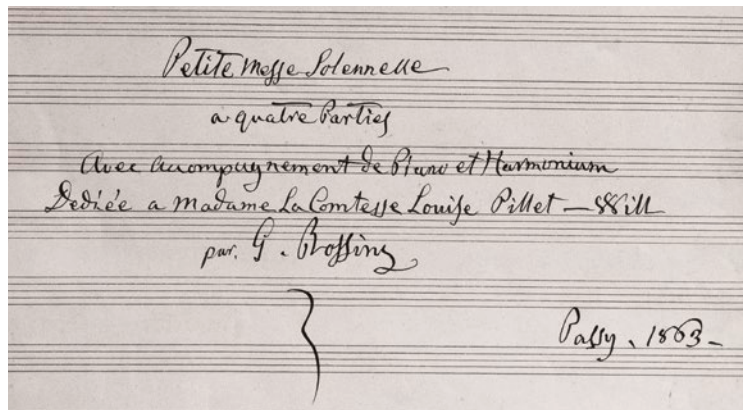 Petite Messe Solennelle
a quatre Parties
Avec Accompagnement de Piano et Harmonium
Dediée a Madame La Comtesse Louise Pillet-Will
par. G. Rossini
Passy. 1863-